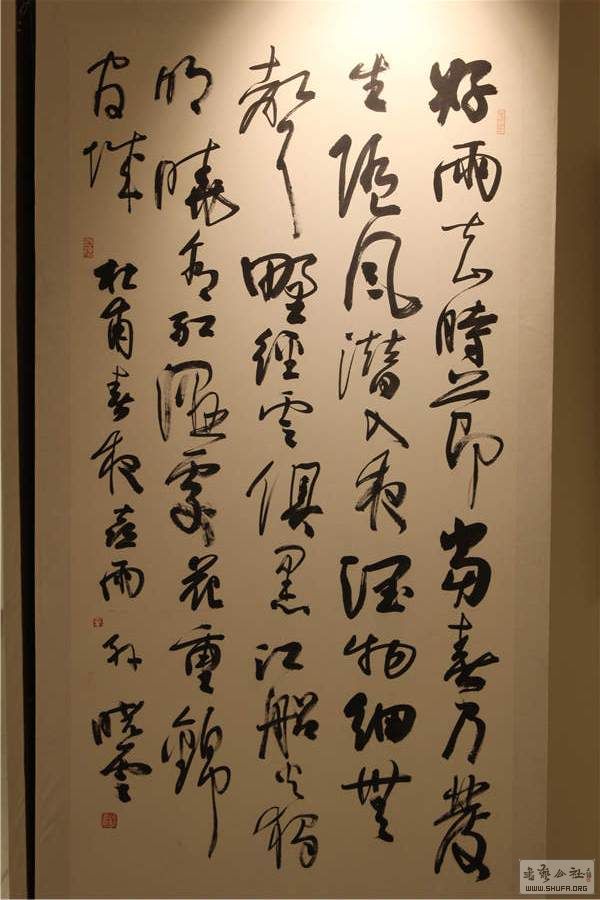 好雨知時節當春乃發
生隨風潛入夜潤物細無
聲野徑雲俱黑江船火獨
明曉看紅濕處花重錦
官城
杜甫春夜喜雨 曉雲
WWW.SHUFA.ORG